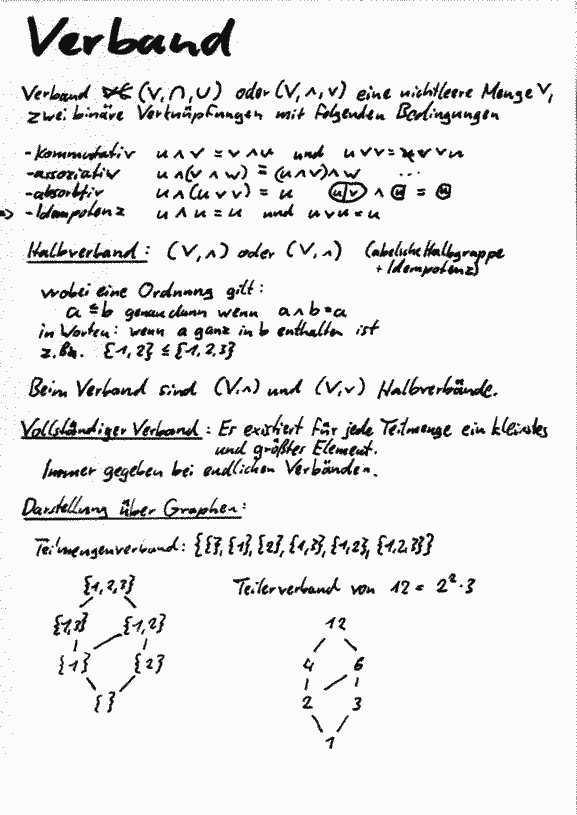 Verband
Verband (V, ∩, ∪) oder (V, ∧, ∨) eine nichtleere Menge V,
zwei binäre Verknüpfungen mit folgenden Bedingungen
-kommutativ u ∧ v = v ∧ u und u ∨ v = v ∨ u
-assoziativ u ∧ (v ∧ w) = (u ∧ v) ∧ w ...
-absorbtiv u ∧ (u ∨ v) = u (u|v) ∧ (u) = (u)
=> -Idempotenz u ∧ u = u und u ∨ u = u
Halbverband: (V, ∧) oder (V, ∧) (abelsche Halbgruppe
+ Idempotenz)
wobei eine Ordnung gilt:
a ≤ b genau dann wenn a ∧ b = a
in Worten: wenn a ganz in b enthalten ist
z.B. {1,2} ≤ {1,2,3}
Beim Verband sind (V, ∧) und (V, ∨) Halbverbände.
Vollständiger Verband: Es existiert für jede Teilmenge ein kleinstes
und größtes Element.
Immer gegeben bei endlichen Verbänden.
Darstellung über Graphen:
Teilmengenverband: {{}, {1}, {2}, {1,3}, {1,2}, {1,2,3}}
{1,2,3} Teilerverband von 12 = 2² · 3
{1,3} {1,2} 12
{1} {2} 4 6
{} 2 3
1